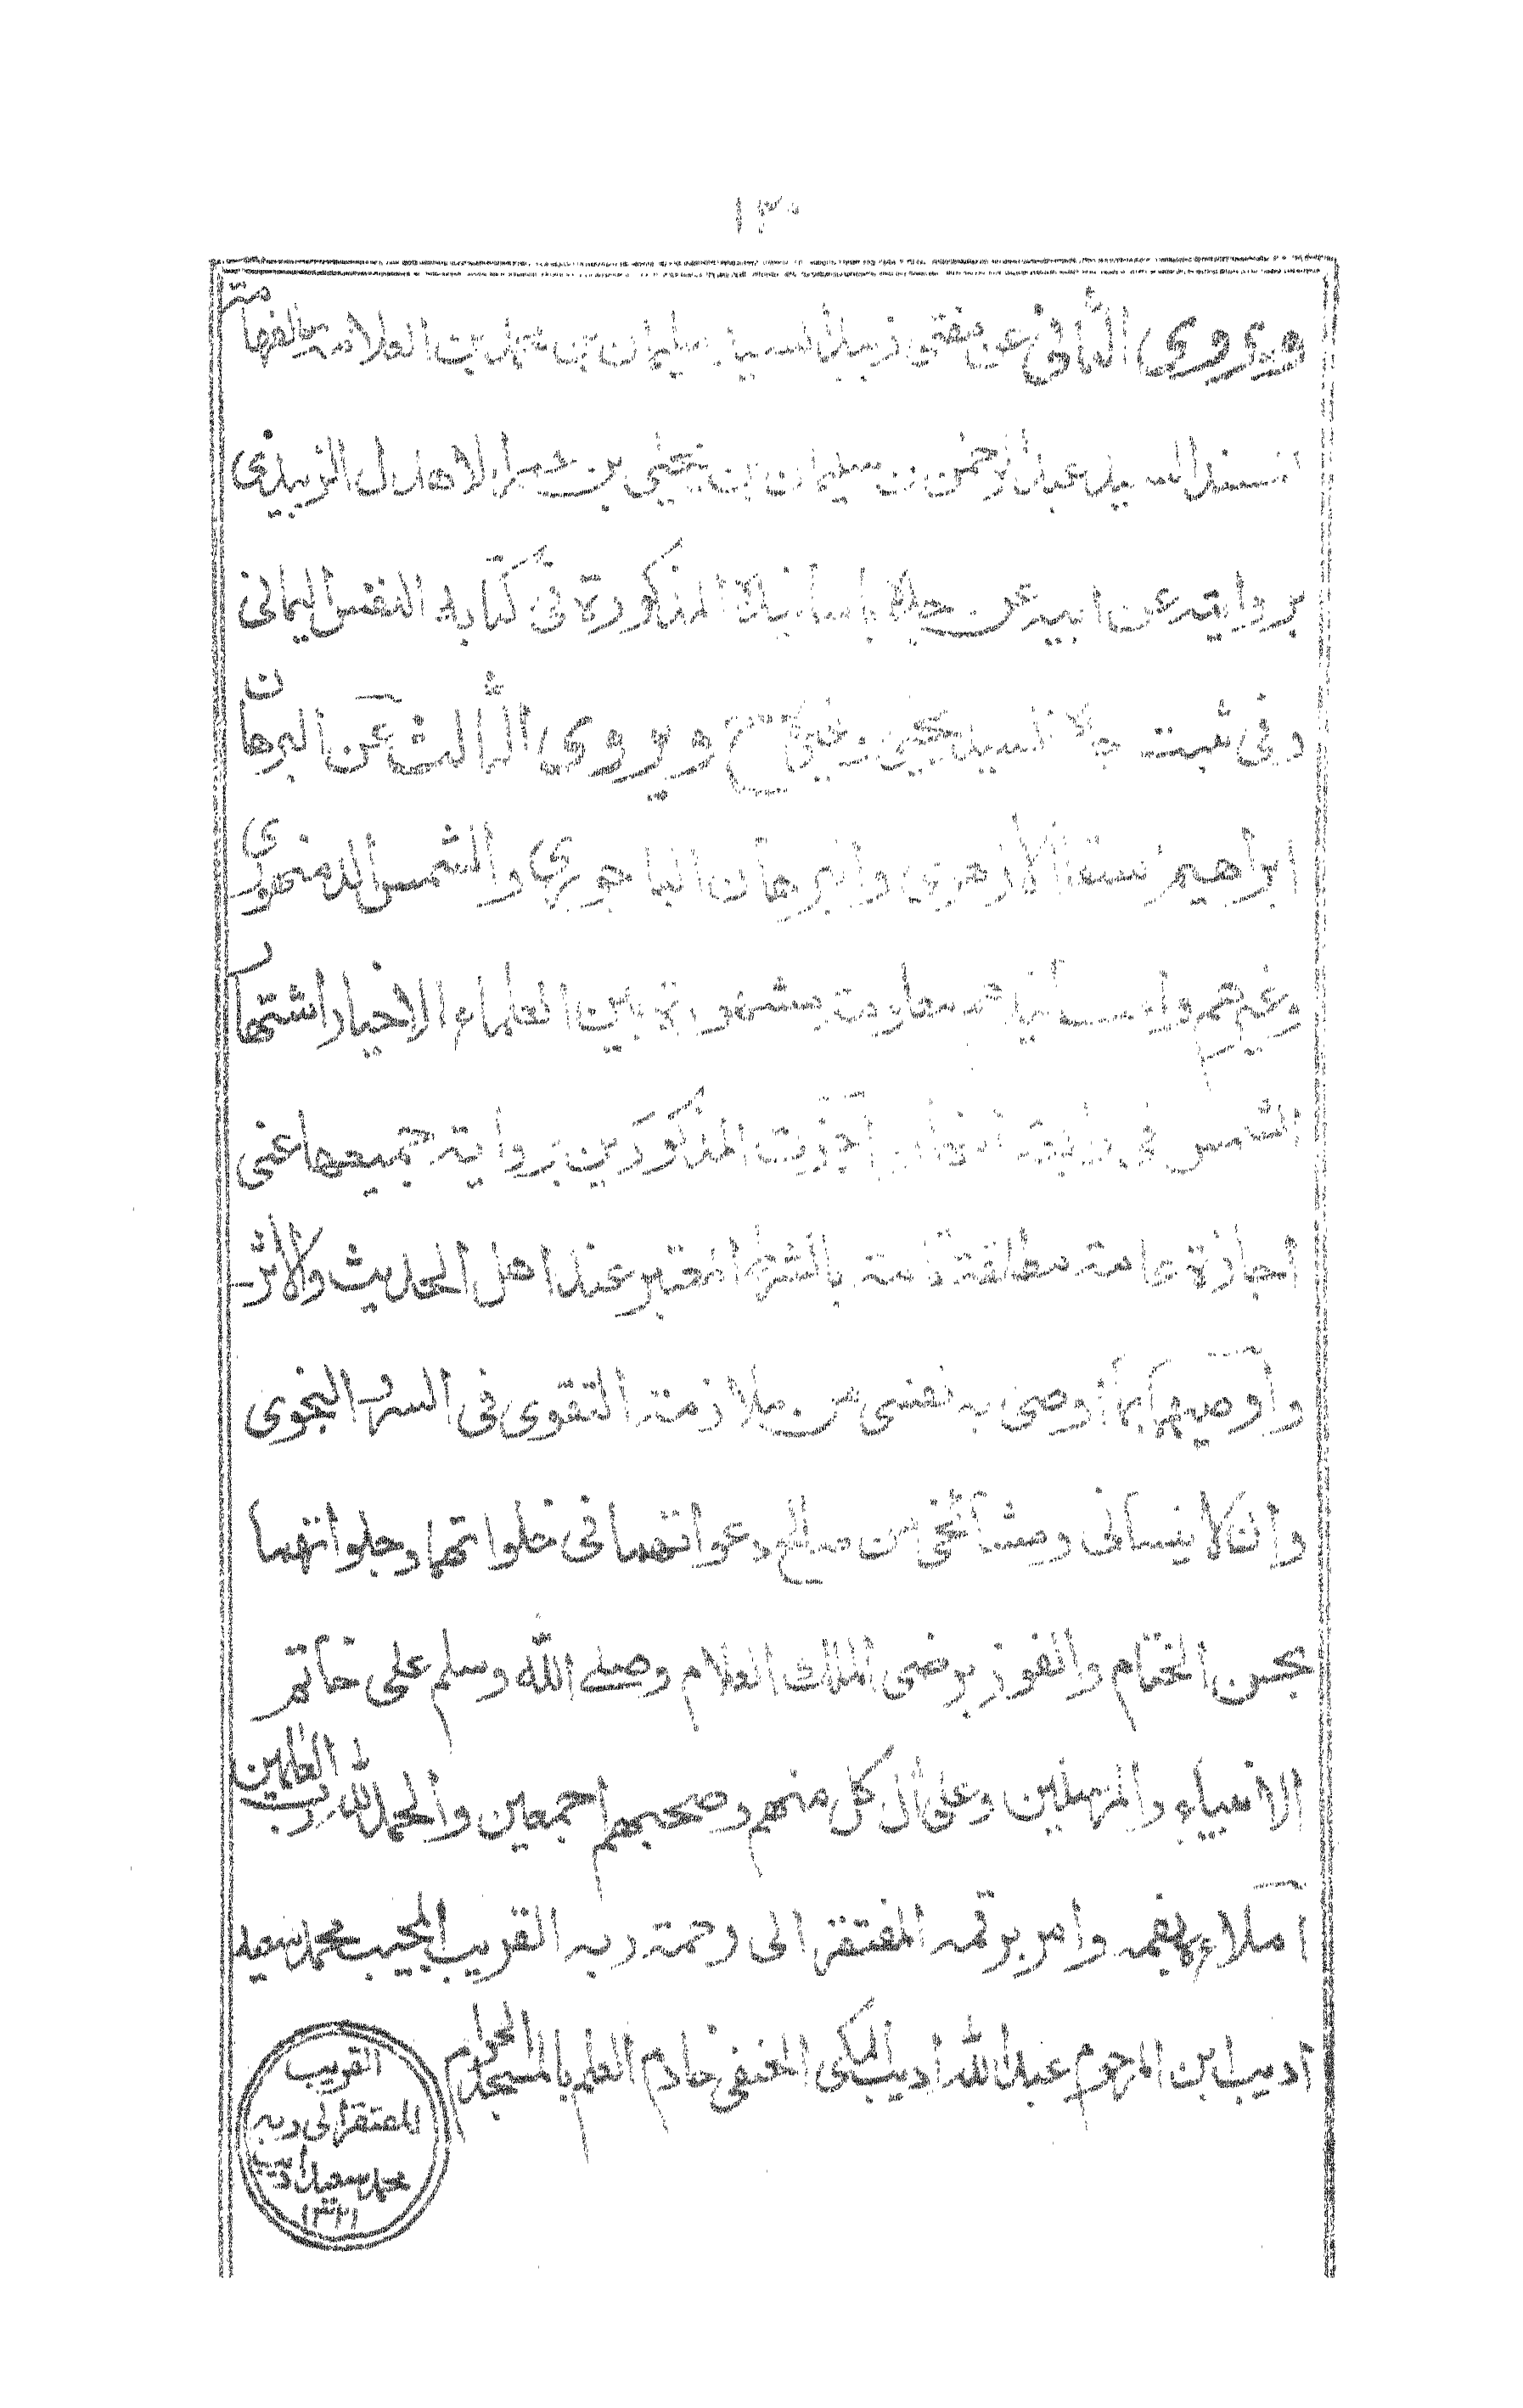 ١٣٠
ويروي الثاني عن مفتى زبيد السيد سليمان بن محمد بن العلامة خاتمة
السيد عبد الرحمن بن سليمان بن يحيى بن عمر الاهدل الزبيدى
بروايته عن ابيه عن جده باسانيده المذكورة فى كتابه النفس اليمانى
وفى ثبت السيد يحيى ويروى الثالث عن البرهان
ابراهيم السقا الأزهرى والبرهان الباجوري والشمس الدمنهوري
وغيرهم واسانيدهم معلومة مشهورة بين العلماء الاخيار اشتهار
الشمس فى رابعة النهار اجزت المذكورين برواية جميعها عنى
اجازة عامة مطلقة تامة بالشرط المعتبر عند اهل الحديث والأثر
وأوصيهما بما أوصى به نفسى من ملازمة التقوى فى السر والنجوى
وان لا ينسانى ومشائخى من صالح دعواتهما فى خلواتهما وجلواتهما
بحسن الختام والفوز برضى الملك العلام وصلى الله وسلم على خاتم
الانبياء والمرسلين وعلى أل كل منهم وصحبهم اجمعين والحمد لله رب العلمين
املاء بفمه وامر برقمه المفتقر الى رحمة ربه القريب المجيب محمد سعيد
اديب ابن المرحوم عبد الله اديب المكى الحنفى خادم العلم بالمسجد الحرام
القريب
المفتقر الى ربه
محمد سعيد اديب
١٣٢١